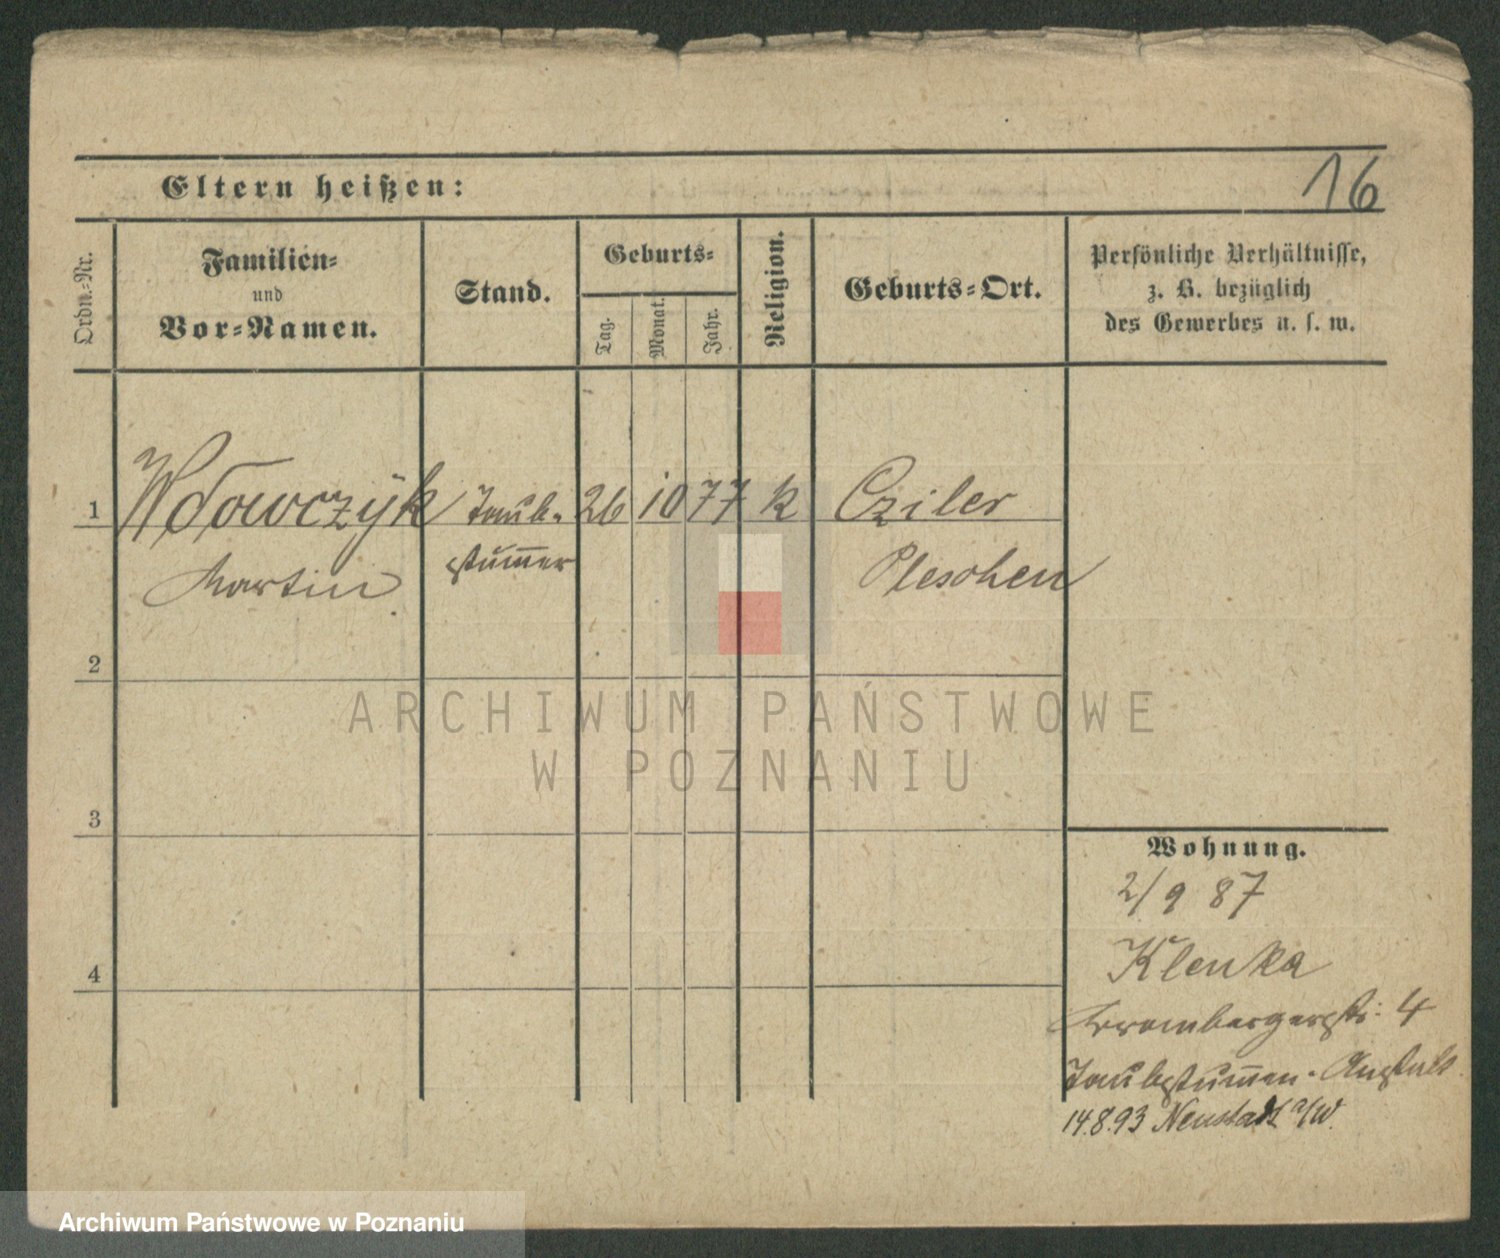 16
Eltern heißen:
Ordn.-Nr.
Familien-
und
Vor-Namen.
Stand.
Geburts-
Tag.
Monat.
Jahr.
Religion.
Geburts-Ort.
Persönliche Verhältnisse,
z. B. bezüglich
des Gewerbes u. s. w.
1
Wdowczyk
Martin
Taub-
stummer
26
10
77
k
Cziler
Pleschen
2
3
4
Wohnung.
2/9 87
Klenka
Brombergerstr. 4
Taubstummen-Anstalt
14.8.93 Neustadt a/W.
ARCHIWUM PAŃSTWOWE
W POZNANIU
Archiwum Państwowe w Poznaniu